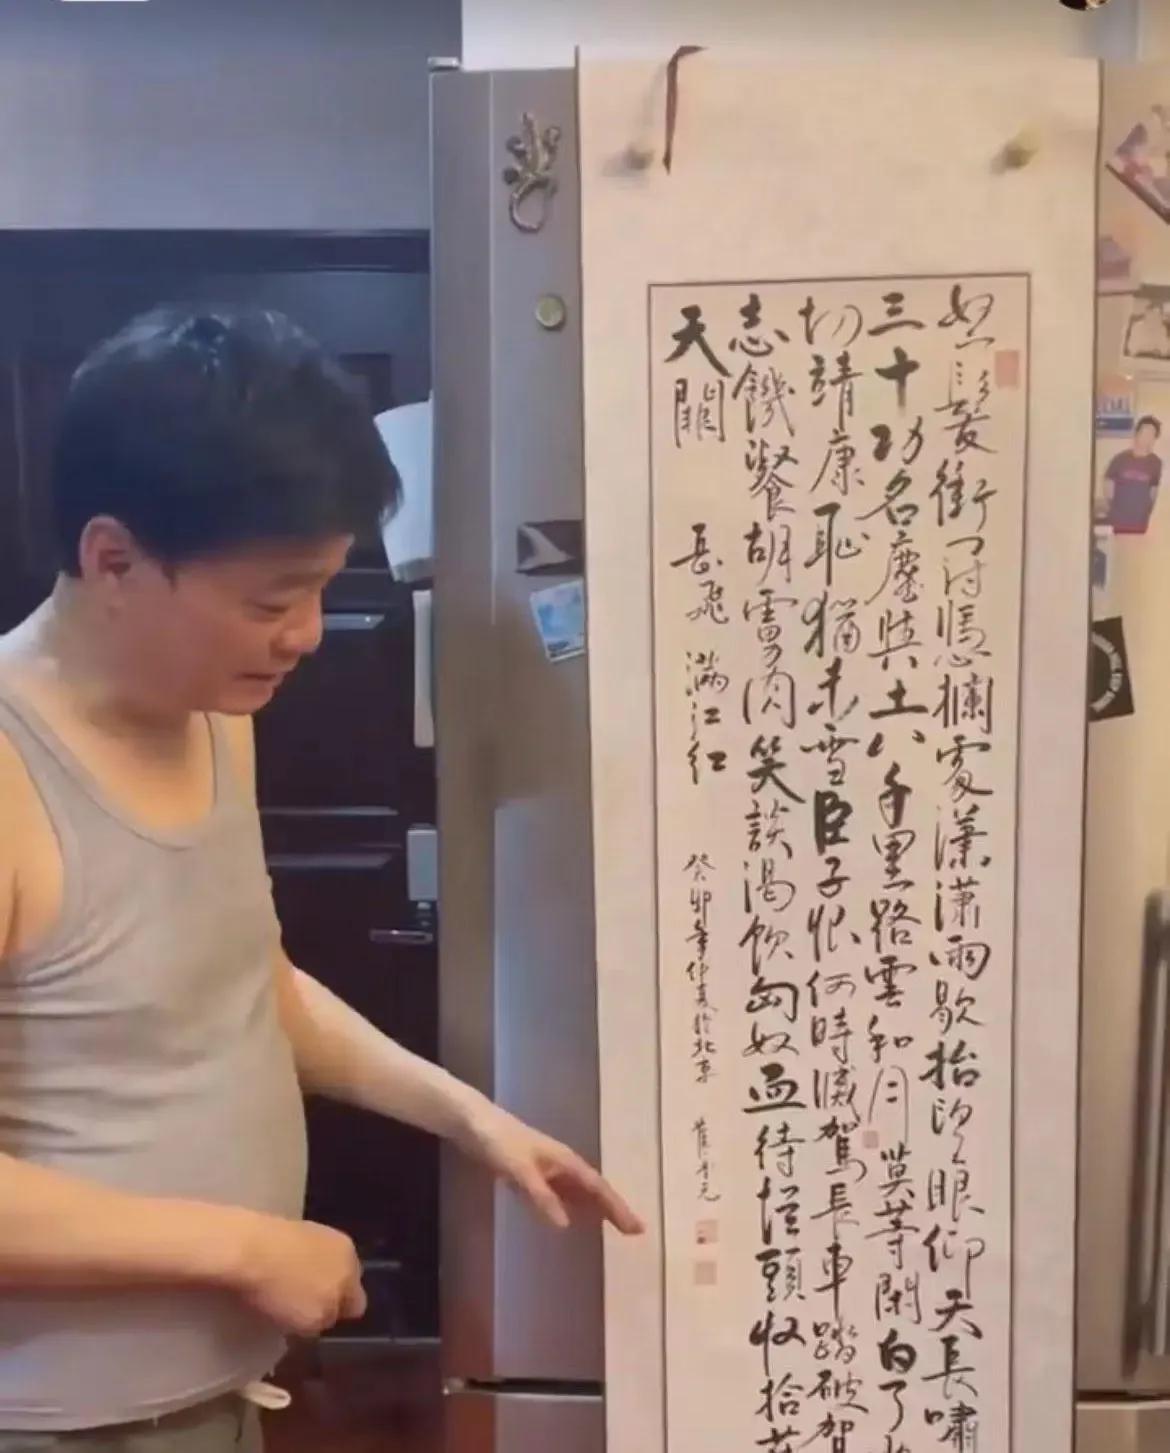 怒髮衝冠憑欄處瀟瀟雨歇抬望眼仰天長嘯
三十功名塵與土八千里路雲和月莫等閑白了
切靖康恥猶未雪臣子恨何時滅駕長車踏破賀
志饑餐胡虜肉笑談渴飲匈奴血待從頭收拾
天闕 岳飛 滿江紅 癸卯年仲夏於北京 崔永元